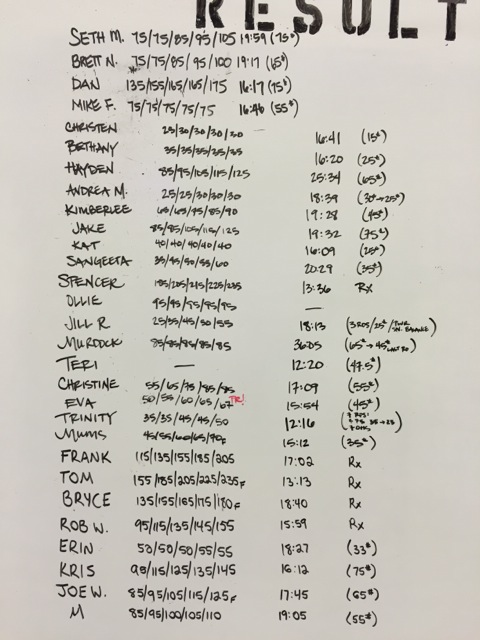 RESULT
SETH M. 75/75/85/95/105 19:59 (75#)
BRETT N. 75/75/85/95/100 19:17 (65#)
DAN 135/155/165/165/175 16:17 (95#)
MIKE F. 75/75/75/75/75 16:46 (55#)
CHRISTEN 25/30/30/30/30 16:41 (15#)
BETHANY 35/35/35/35/35 16:20 (25#)
HAYDEN 85/95/105/115/125 25:34 (65#)
ANDREA M. 25/25/30/30/30 18:39 (30#→25#)
KIMBERLEE 65/65/75/85/90 19:28 (45#)
JAKE 85/85/105/115/125 19:32 (75#)
KAT 40/40/40/40/40 16:09 (25#)
SANGEETA 35/45/50/55/60 20:29 (35#)
SPENCER 185/205/215/225/235 13:36 Rx
OLLIE 95/95/95/95/95 —
JILL R 25/35/45/50/55 18:13 (3 RDS/25#/
MURDOCK 85/85/85/85/85 36:05 (65#→45# LAST RD)
TERI — 12:20 (47.5#)
CHRISTINE 55/65/75/85/85 17:09 (55#)
EVA 50/55/60/65/67 PR! 15:54 (45#)
TRINITY 35/35/45/45/50 12:16
MUMS 45/55/60/65/70F 15:12 (35#)
FRANK 115/135/155/185/205 17:02 Rx
TOM 155/185/205/225/235F 13:13 Rx
BRYCE 135/155/165/175/180F 18:40 Rx
ROB W. 95/115/135/145/155 15:59 Rx
ERIN 50/50/50/55/55 18:27 (33#)
KRIS 95/115/125/135/145 16:12 (75#)
JOE W. 85/95/105/115/125F 17:45 (65#)
M 85/95/100/105/110 19:05 (55#)